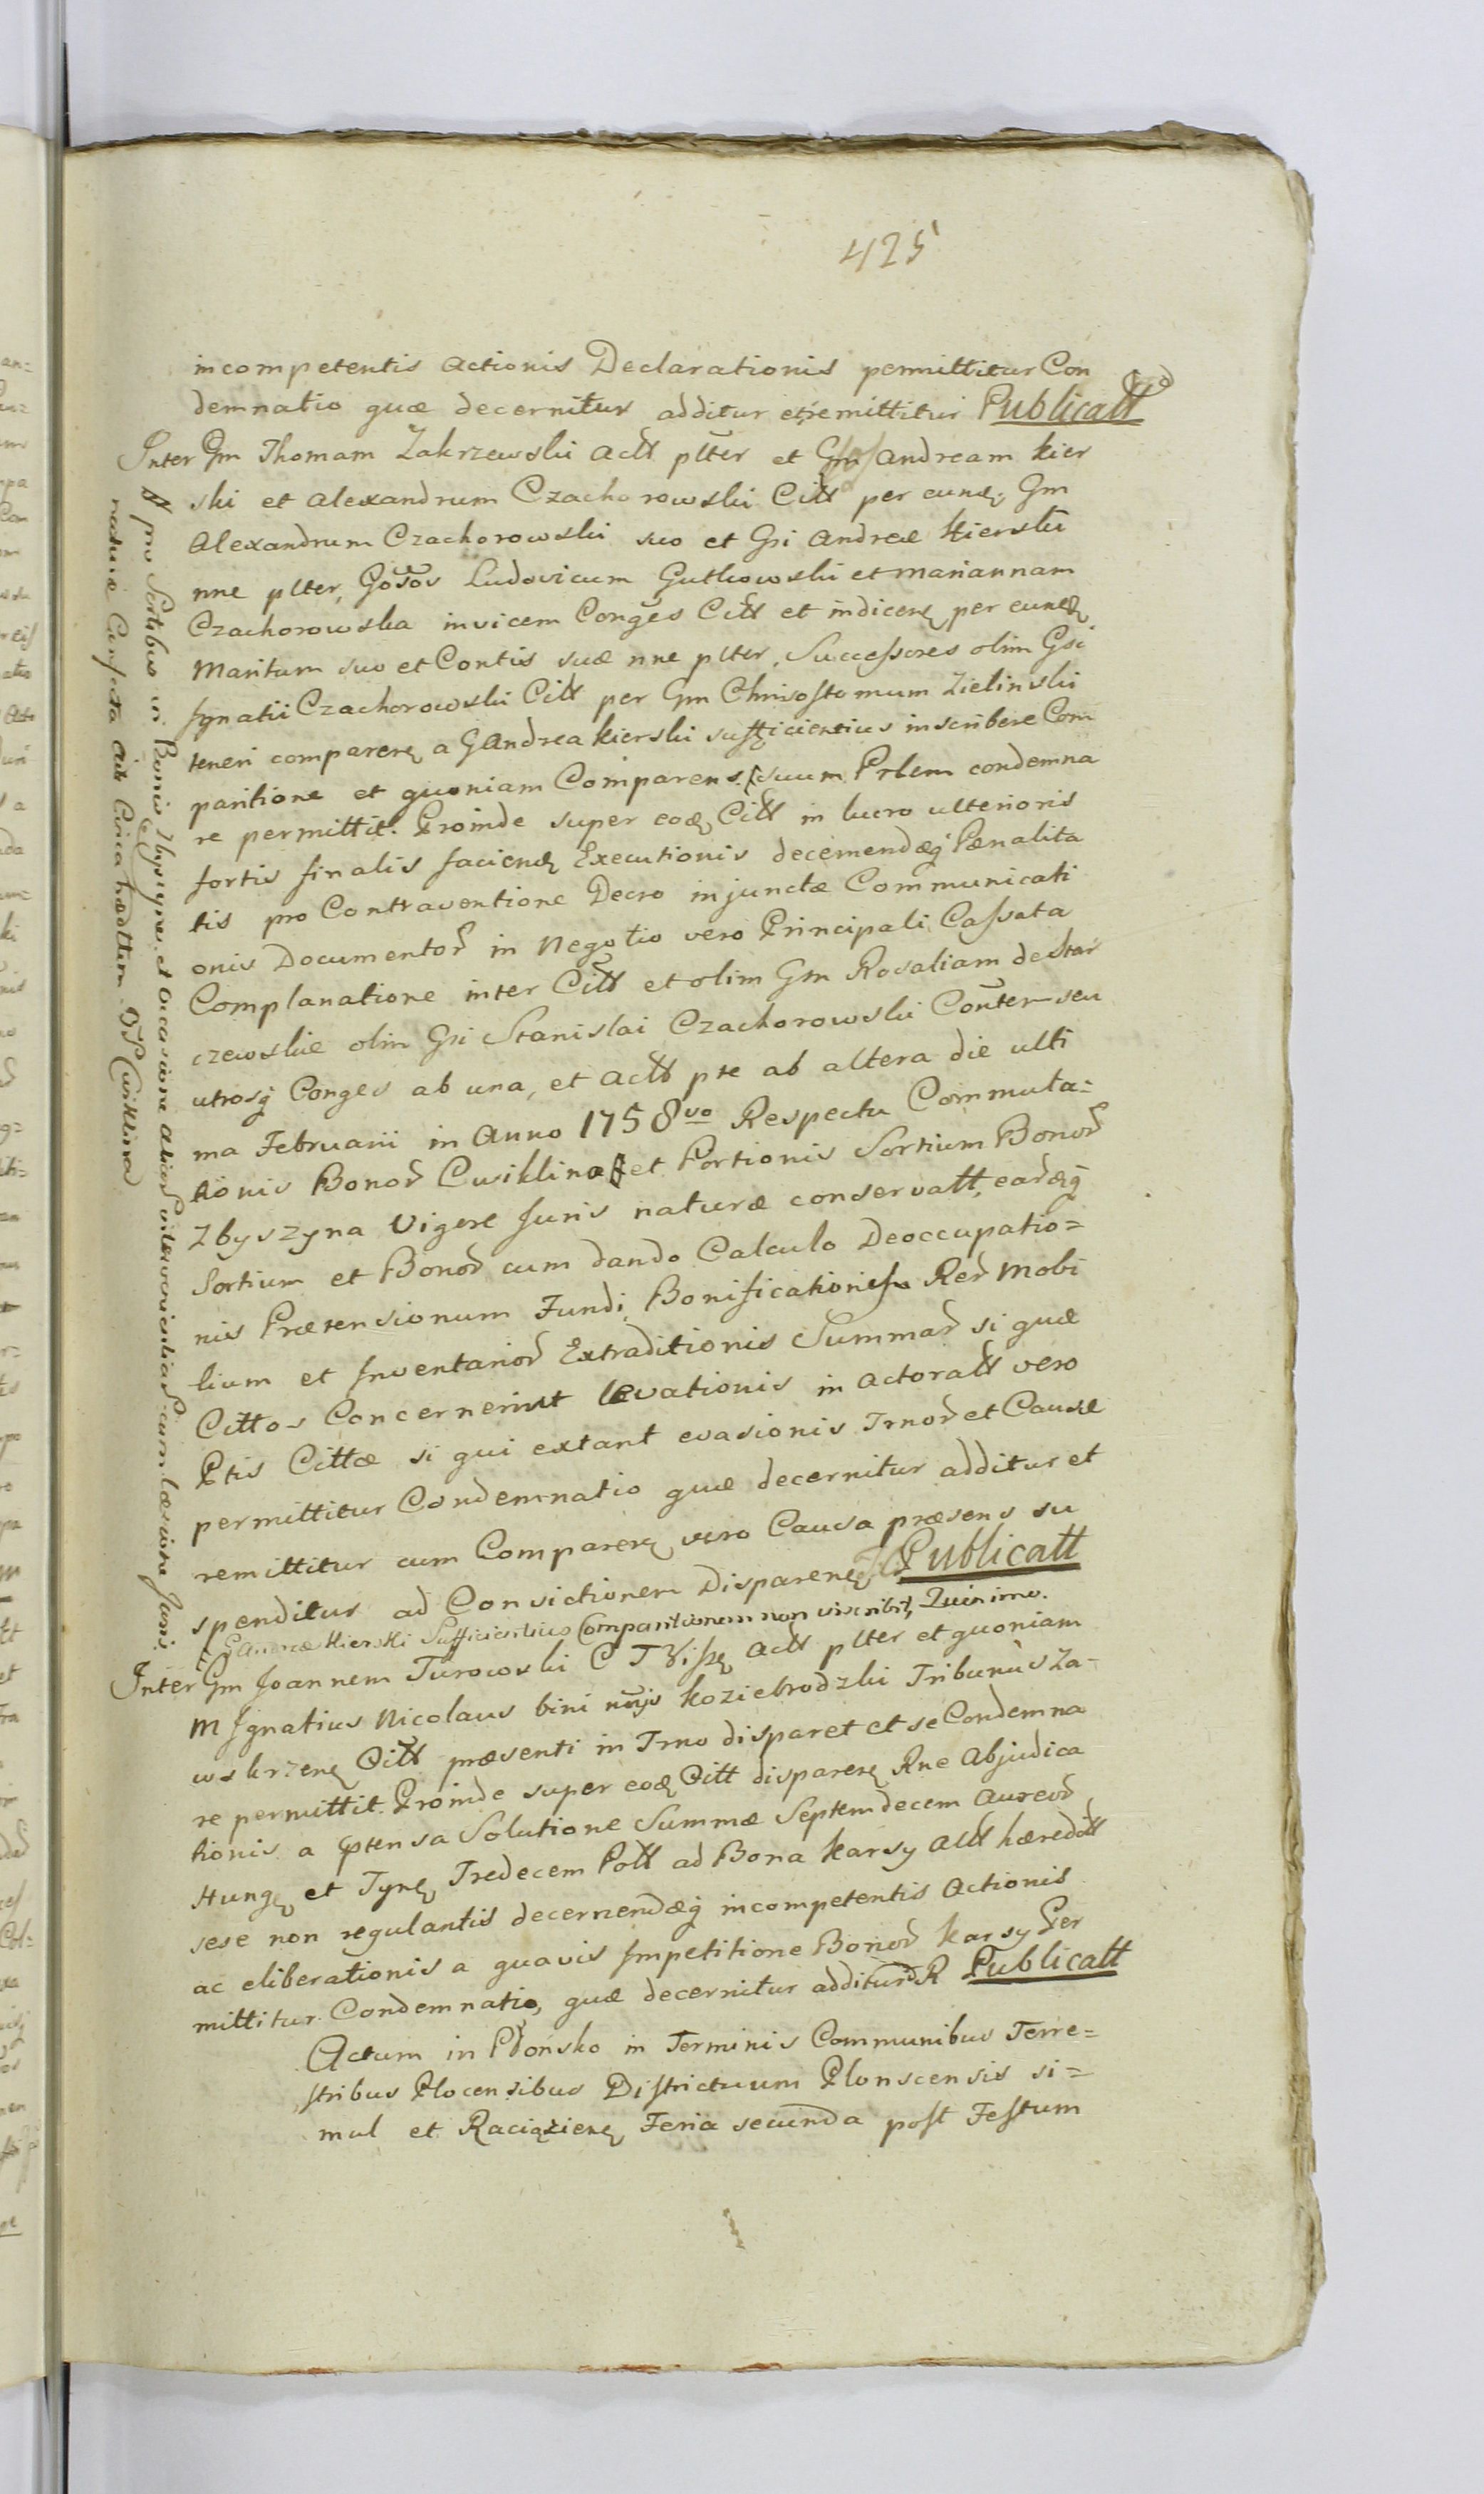 425
incompetentis actionis Declarationis permittitur Con
demnatio quæ decernitur additur et remittitur Publicatt
Inter Gm Thomam Zakrzewski Actt plter et Gm Andream Kier
ski et Alexandrum Czachorowski Citt per eunđ Gm
Alexandrum Czachorowski suo et Gsi Andreæ Kierski
nne plter, Gosos Ludovicum Gutkowski et Mariannam
Czachorowska invicem Conges Citt et indicenđ per eunđ
Maritum suo et Contis suæ nne plter, Successores olim Gsi
Ignatii Czachorowski Citt per Gm Chrisostomum Zielinski
teneri comparenđ a G Andrea Kierski sufficientius inscribere Com
paritione et quoniam Comparens suum Prlem condemna
re permittit. Proinde super eođ Citt in lucro ulterioris
fortis finalis faciend Executionis decernendæq Pænalita
tis pro Contraventione Decro injunctæ Communicati
onis Documentor in Negotio vero Principali Cassata
Complanatione inter Citt et olim Gm Rosaliam de Star
czewskie olim Gsi Stanislai Czachorowski Conter seu
utrosq Conges ab una, et Actt pte ab altera die ulti
ma Februarii in Anno 1758vo Respectu Commuta=
tionis Bonor Cwiklina et Portionis Sortium Bonor
Zbyszyna Vigore Juris naturæ conservatt, eardęq
Sortium et Bonor cum dando Calculo Deoccupatio=
nis Prætensionum Fundi, Bonificationis Rer Mobi
lium et Inventarior Extraditionis Summar si quæ
Cittos Concernerint levationis in actoratt vero
Ptis Cittæ si qui extant evasionis Trnor et Causæ
permittitur Condemnatio quæ decernitur additur et
remittitur cum Comparenđ vero Causa præsens su
spenditur ad Convictionem Disparenđ Publicatt
G Andreæ Kierski Sufficientius Comparitionem non inscribit, Quin imo.
Inter Gm Joannem Turowski C T Actt plter et quoniam
M Ignatius Nicolaus bini nois Koziebrodzki Tribunus Za-
wskrzenđ Citt præsenti in Trno disparet et se Condemna
re permittit. Proinde super eođ Citt disparenđ Rne Abjudica
tionis a ptensa Solutione Summæ Septemdecem Aureor
Hung et Tynđ Tredecem Pott ad Bona Karsy Actt hæreditt
sese non regulantis decernendæq incompetentis Actionis
ac eliberationis a quavis Impetitione Bonor Karsy Per
mittitur Condemnatio, quæ decernitur additur R Publicatt
Actum in Płońsko in Terminis Communibus Terre=
stribus Plocensibus Districtuum Plonscensis si=
mul et Raciązienđ Feria secunda post Festum
pro Sortibus in Bonis Zbyszyno et occasione aliar intervenientiar cum læsione Juris
naturæ Confecta aut Circa hærttem Cwiklina